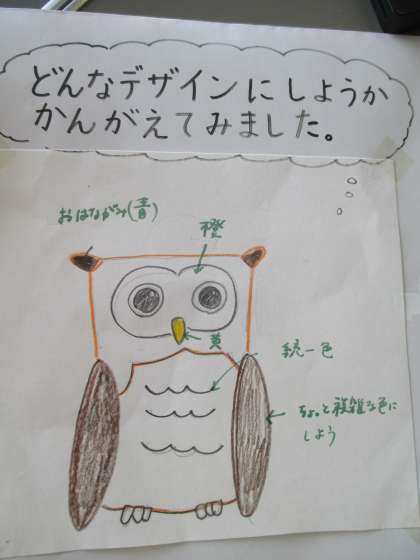 どんなデザインにしようか
かんがえてみました。
おはながみ(青)
橙
黄
統一色
ちょっと複雑な色に
しよう